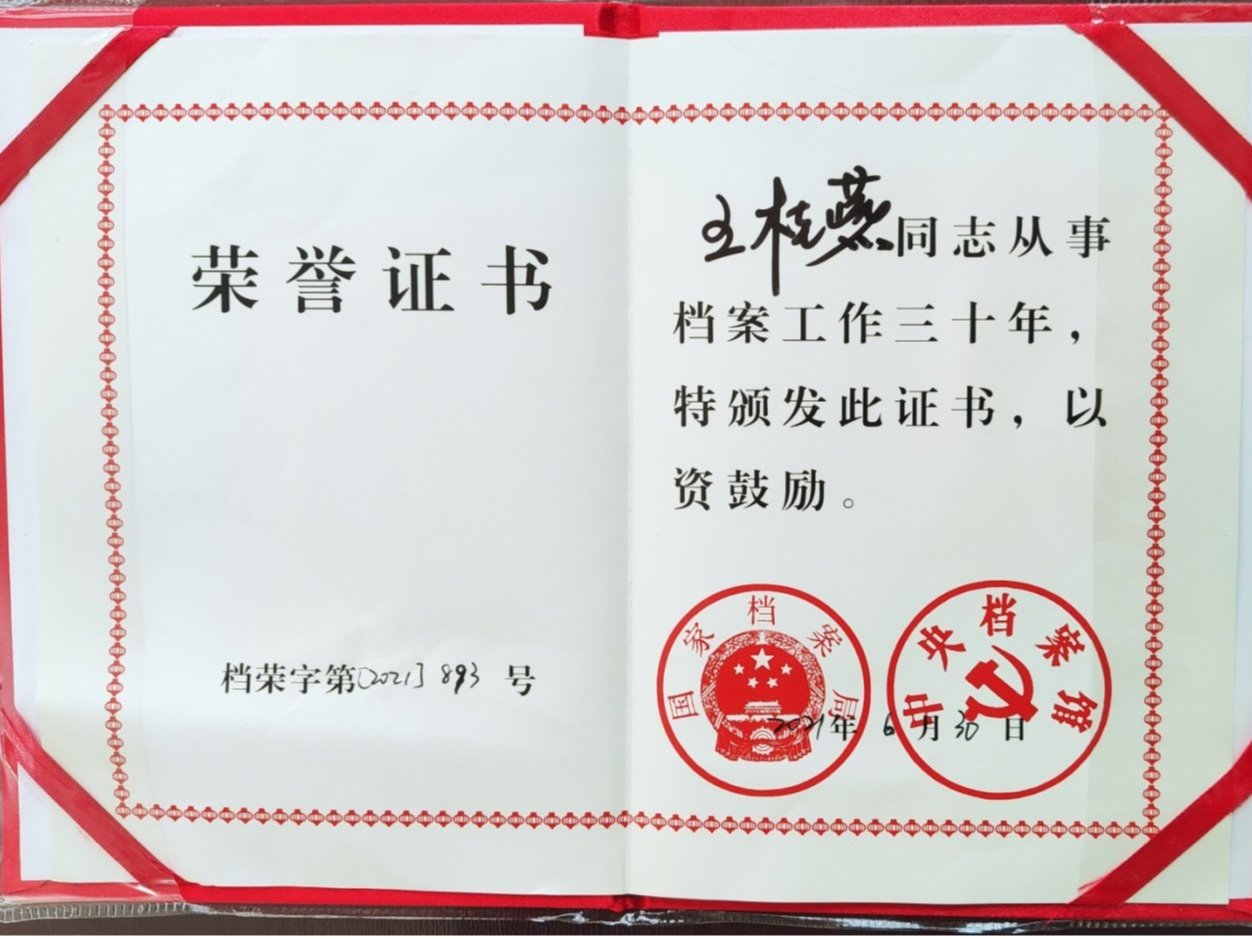 荣誉证书
档荣字第[2021]893号
王桂燕同志从事
档案工作三十年，
特颁发此证书，以
资鼓励。
国家档案局
中央档案馆
2021年6月30日